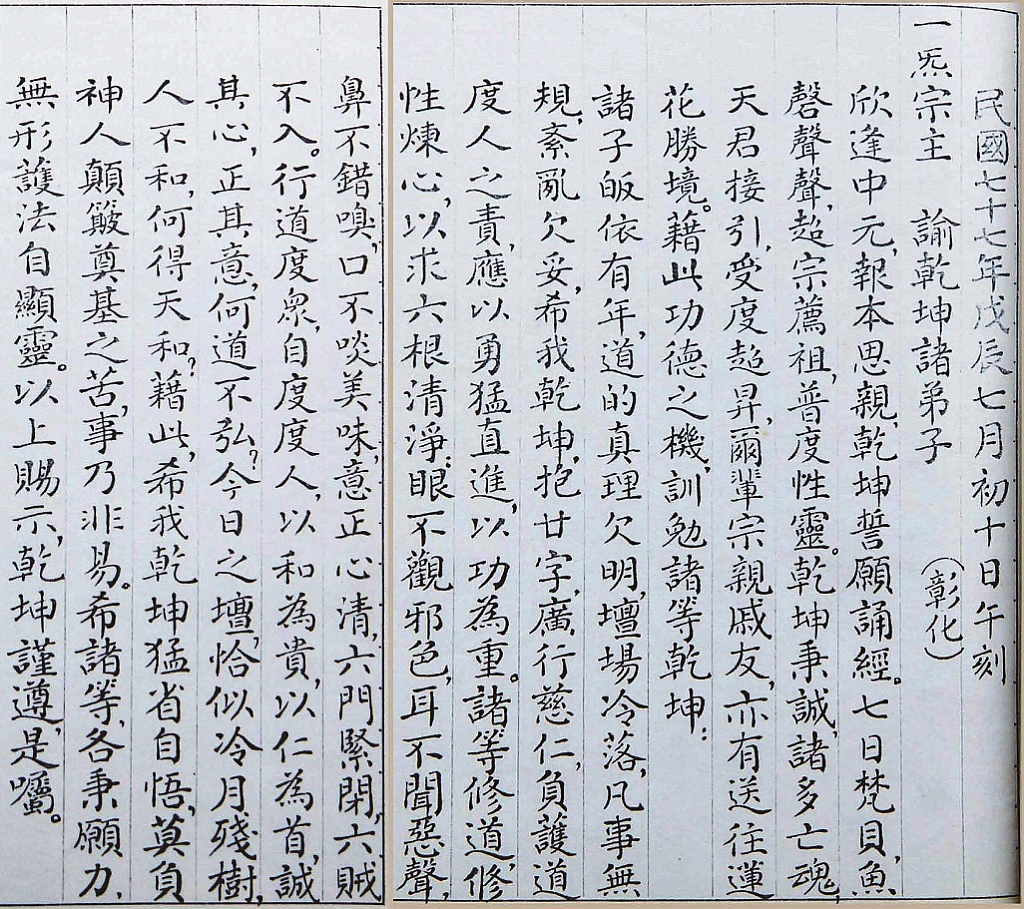 民國七十七年戊辰七月初十日午刻
一炁宗主　諭乾坤諸弟子　（彰化）
欣逢中元，報本思親，乾坤誓願誦經。七日梵貝，魚
磬聲聲，超宗薦祖，普度性靈。乾坤秉誠，諸多亡魂，
天君接引，受度超昇，爾輩宗親戚友，亦有送往蓮
花勝境。藉此功德之機，訓勉諸等乾坤：
諸子皈依有年，道的真理欠明，壇場冷落，凡事無
規，紊亂欠妥，希我乾坤，抱廿字，廣行慈仁，負護道
度人之責，應以勇猛直進，以功為重。諸等修道，修
性煉心，以求六根清淨：眼不觀邪色，耳不聞惡聲，
鼻不錯嗅，口不啖美味，意正心清，六門緊閉，六賊
不入。行道度眾，自度度人，以和為貴，以仁為首，誠
其心，正其意，何道不弘？今日之壇，恰似冷月殘樹，
人不和，何得天和？藉此，希我乾坤猛省自悟，莫負
神人顛簸奠基之苦，事乃非易。希諸等，各秉願力，
無形護法自顯靈。以上賜示，乾坤謹遵，是囑。